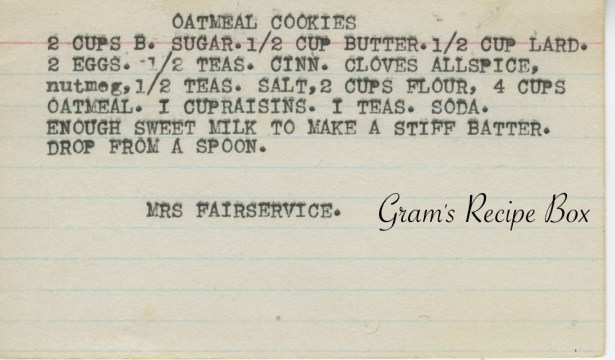 OATMEAL COOKIES
2 CUPS B. SUGAR.1/2 CUP BUTTER.1/2 CUP LARD.
2 EGGS. 1/2 TEAS. CINN. CLOVES ALLSPICE,
nutmeg,1/2 TEAS. SALT,2 CUPS FLOUR, 4 CUPS
OATMEAL. I CUPRAISINS. I TEAS. SODA.
ENOUGH SWEET MILK TO MAKE A STIFF BATTER.
DROP FROM A SPOON.
MRS FAIRSERVICE. Gram's Recipe Box